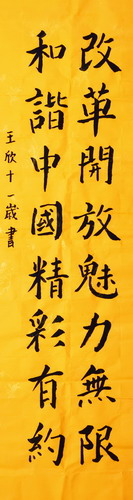 改革開放魅力無限
和諧中國精彩有約
王欣十一歲書